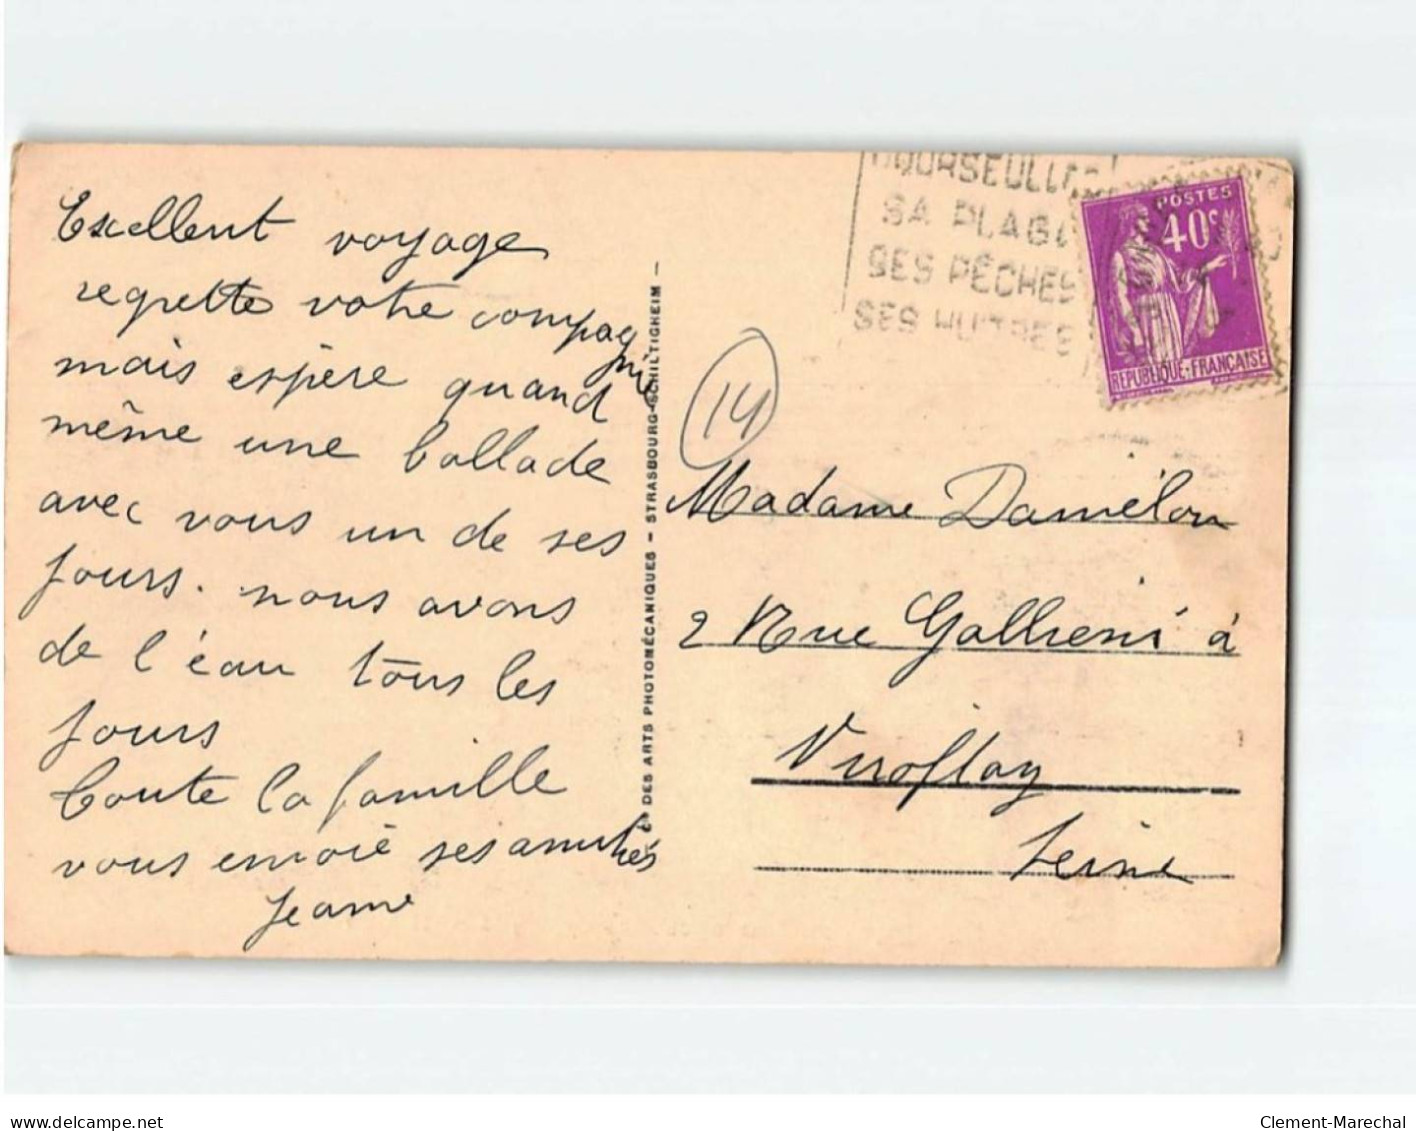 Excellent voyage
regrette votre compagnie
mais espère quand
même une ballade
avec vous un de ses
jours. nous avons
de l'éau tous les
jours
Toute la famille
vous envoie ses amitiés
Jeanne
Cie DES ARTS PHOTOMÉCANIQUES - STRASBOURG-SCHILTIGHEIM -
SA PLAGE
SES PÊCHES
SES HUITRES
POSTES
40c
RÉPUBLIQUE-FRANÇAISE
14
Madame Damélon
2 Rue Gallieni à
Viroflay
Seine
delcampe.net
Clement-Marechal